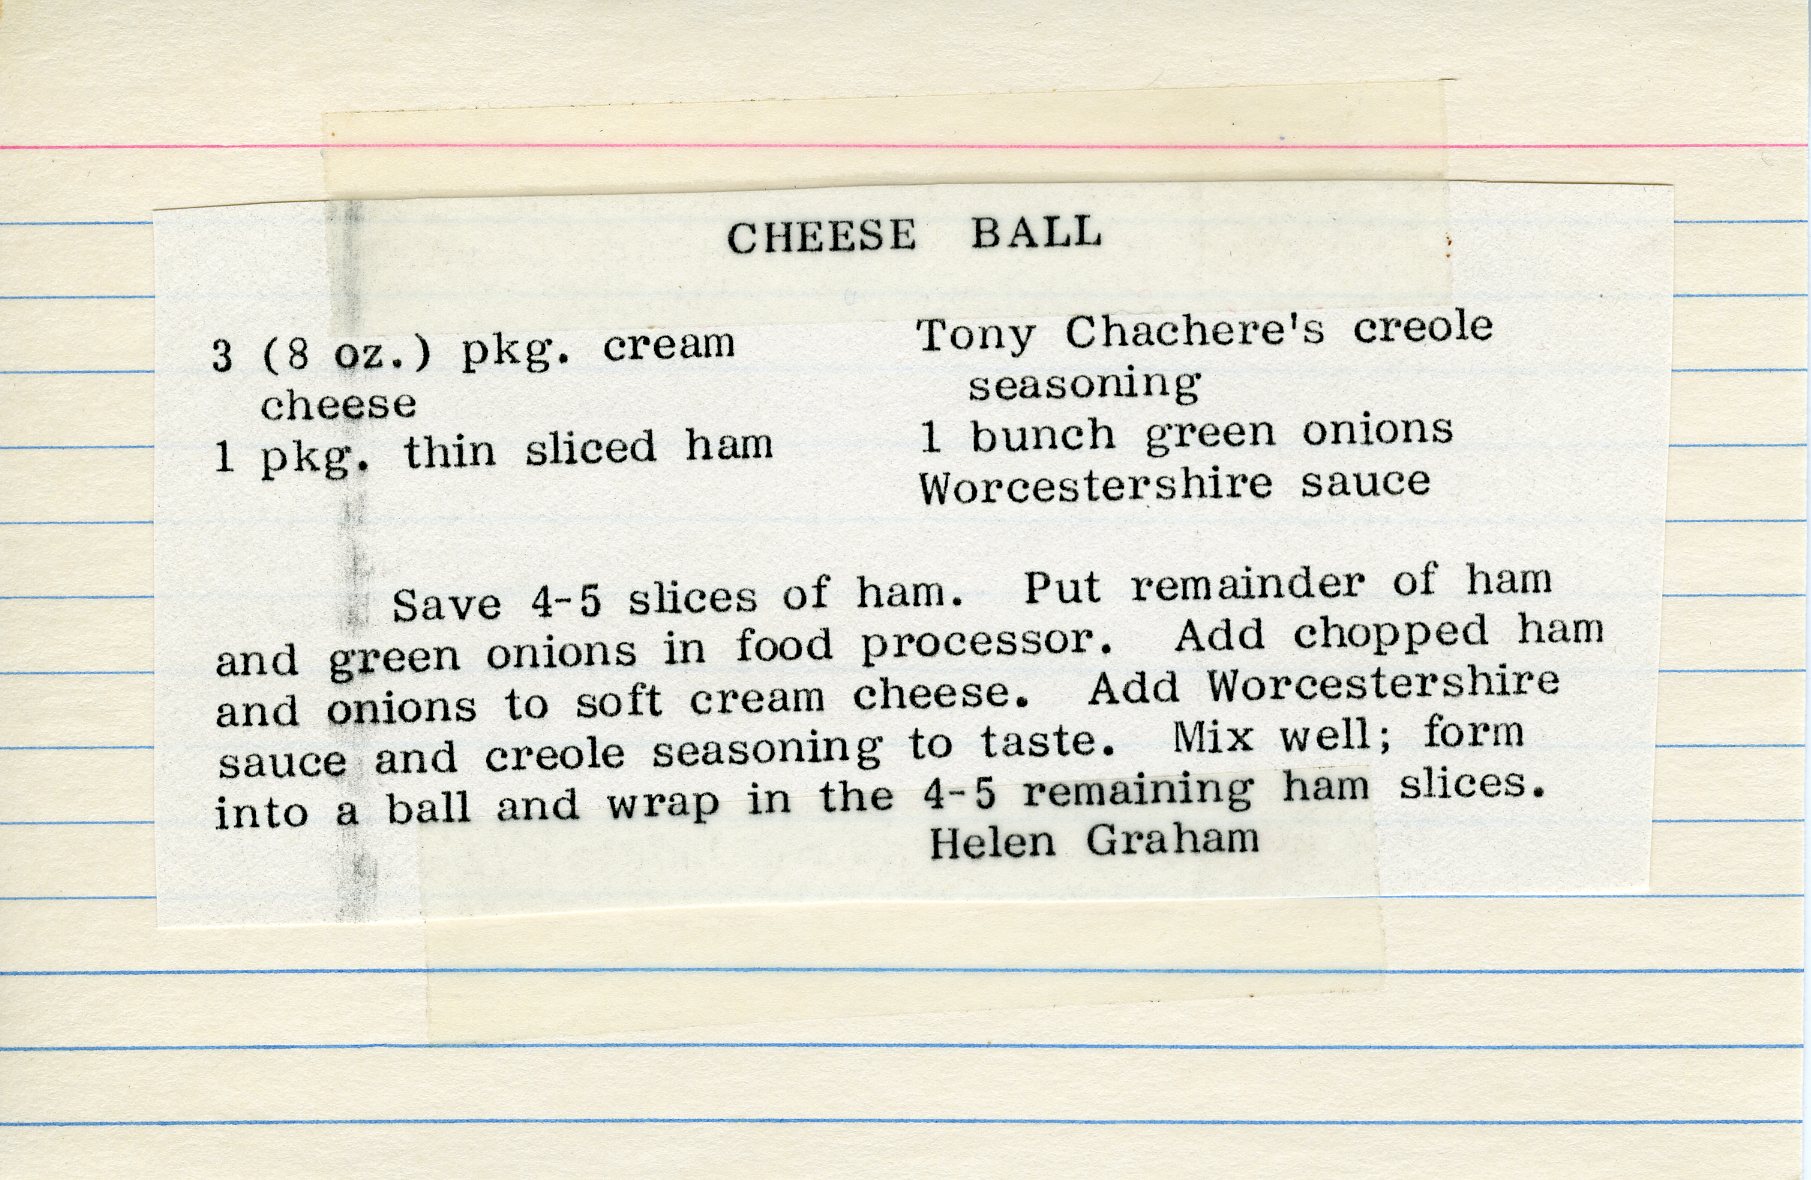 CHEESE BALL
3 (8 oz.) pkg. cream
cheese
1 pkg. thin sliced ham
Tony Chachere's creole
seasoning
1 bunch green onions
Worcestershire sauce
Save 4-5 slices of ham. Put remainder of ham
and green onions in food processor. Add chopped ham
and onions to soft cream cheese. Add Worcestershire
sauce and creole seasoning to taste. Mix well; form
into a ball and wrap in the 4-5 remaining ham slices.
Helen Graham